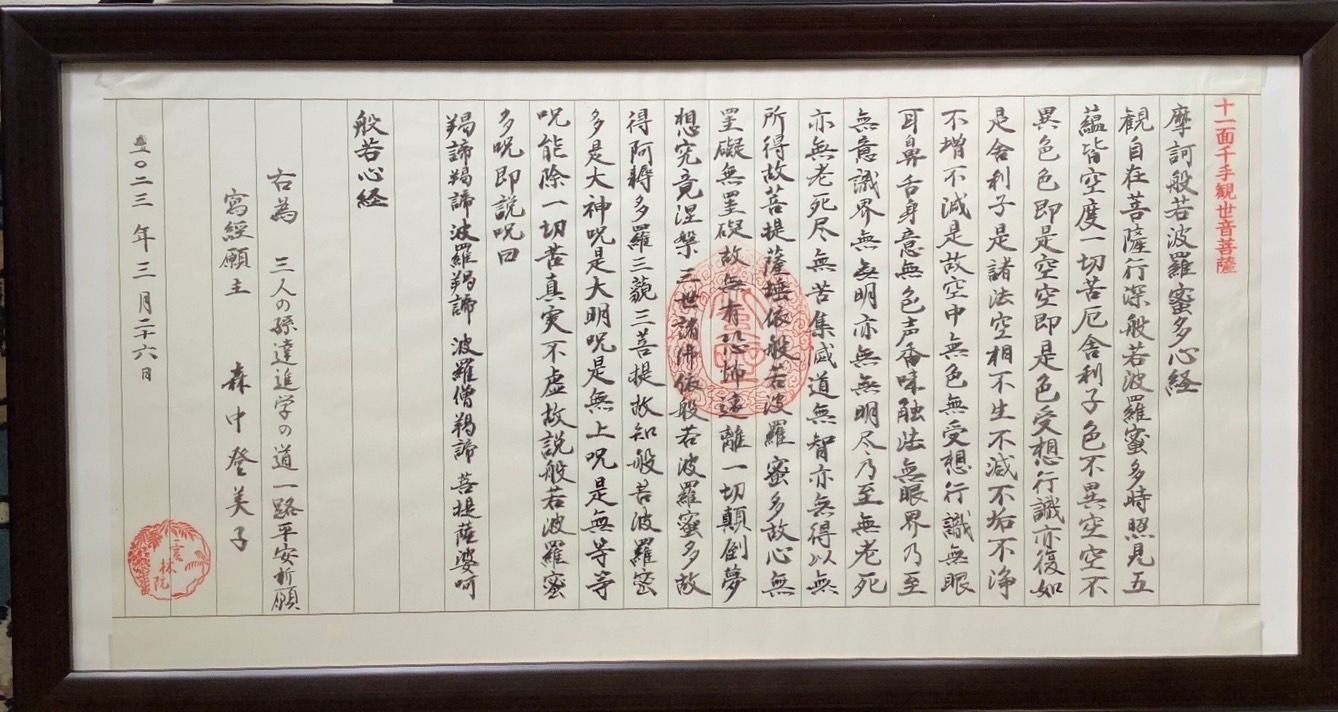 十一面千手観世音菩薩
摩訶般若波羅蜜多心経
観自在菩薩行深般若波羅蜜多時照見五
蘊皆空度一切苦厄舎利子色不異空空不
異色色即是空空即是色受想行識亦復如
是舎利子是諸法空相不生不滅不垢不浄
不増不減是故空中無色無受想行識無眼
耳鼻舌身意無色声香味触法無眼界乃至
無意識界無無明亦無無明尽乃至無老死
亦無老死尽無苦集滅道無智亦無得以無
所得故菩提薩埵依般若波羅蜜多故心無
罣礙無罣礙故無有恐怖遠離一切顛倒夢
想究竟涅槃三世諸佛依般若波羅蜜多故
得阿耨多羅三藐三菩提故知般若波羅蜜
多是大神呪是大明呪是無上呪是無等等
呪能除一切苦真実不虚故説般若波羅蜜
多呪即説呪曰
羯諦羯諦 波羅羯諦 波羅僧羯諦 菩提薩婆訶
般若心経
右為 三人の孫達進学の道一路平安祈願
寫經願主 森中登美子
二〇二三年三月二十六日
雲林院